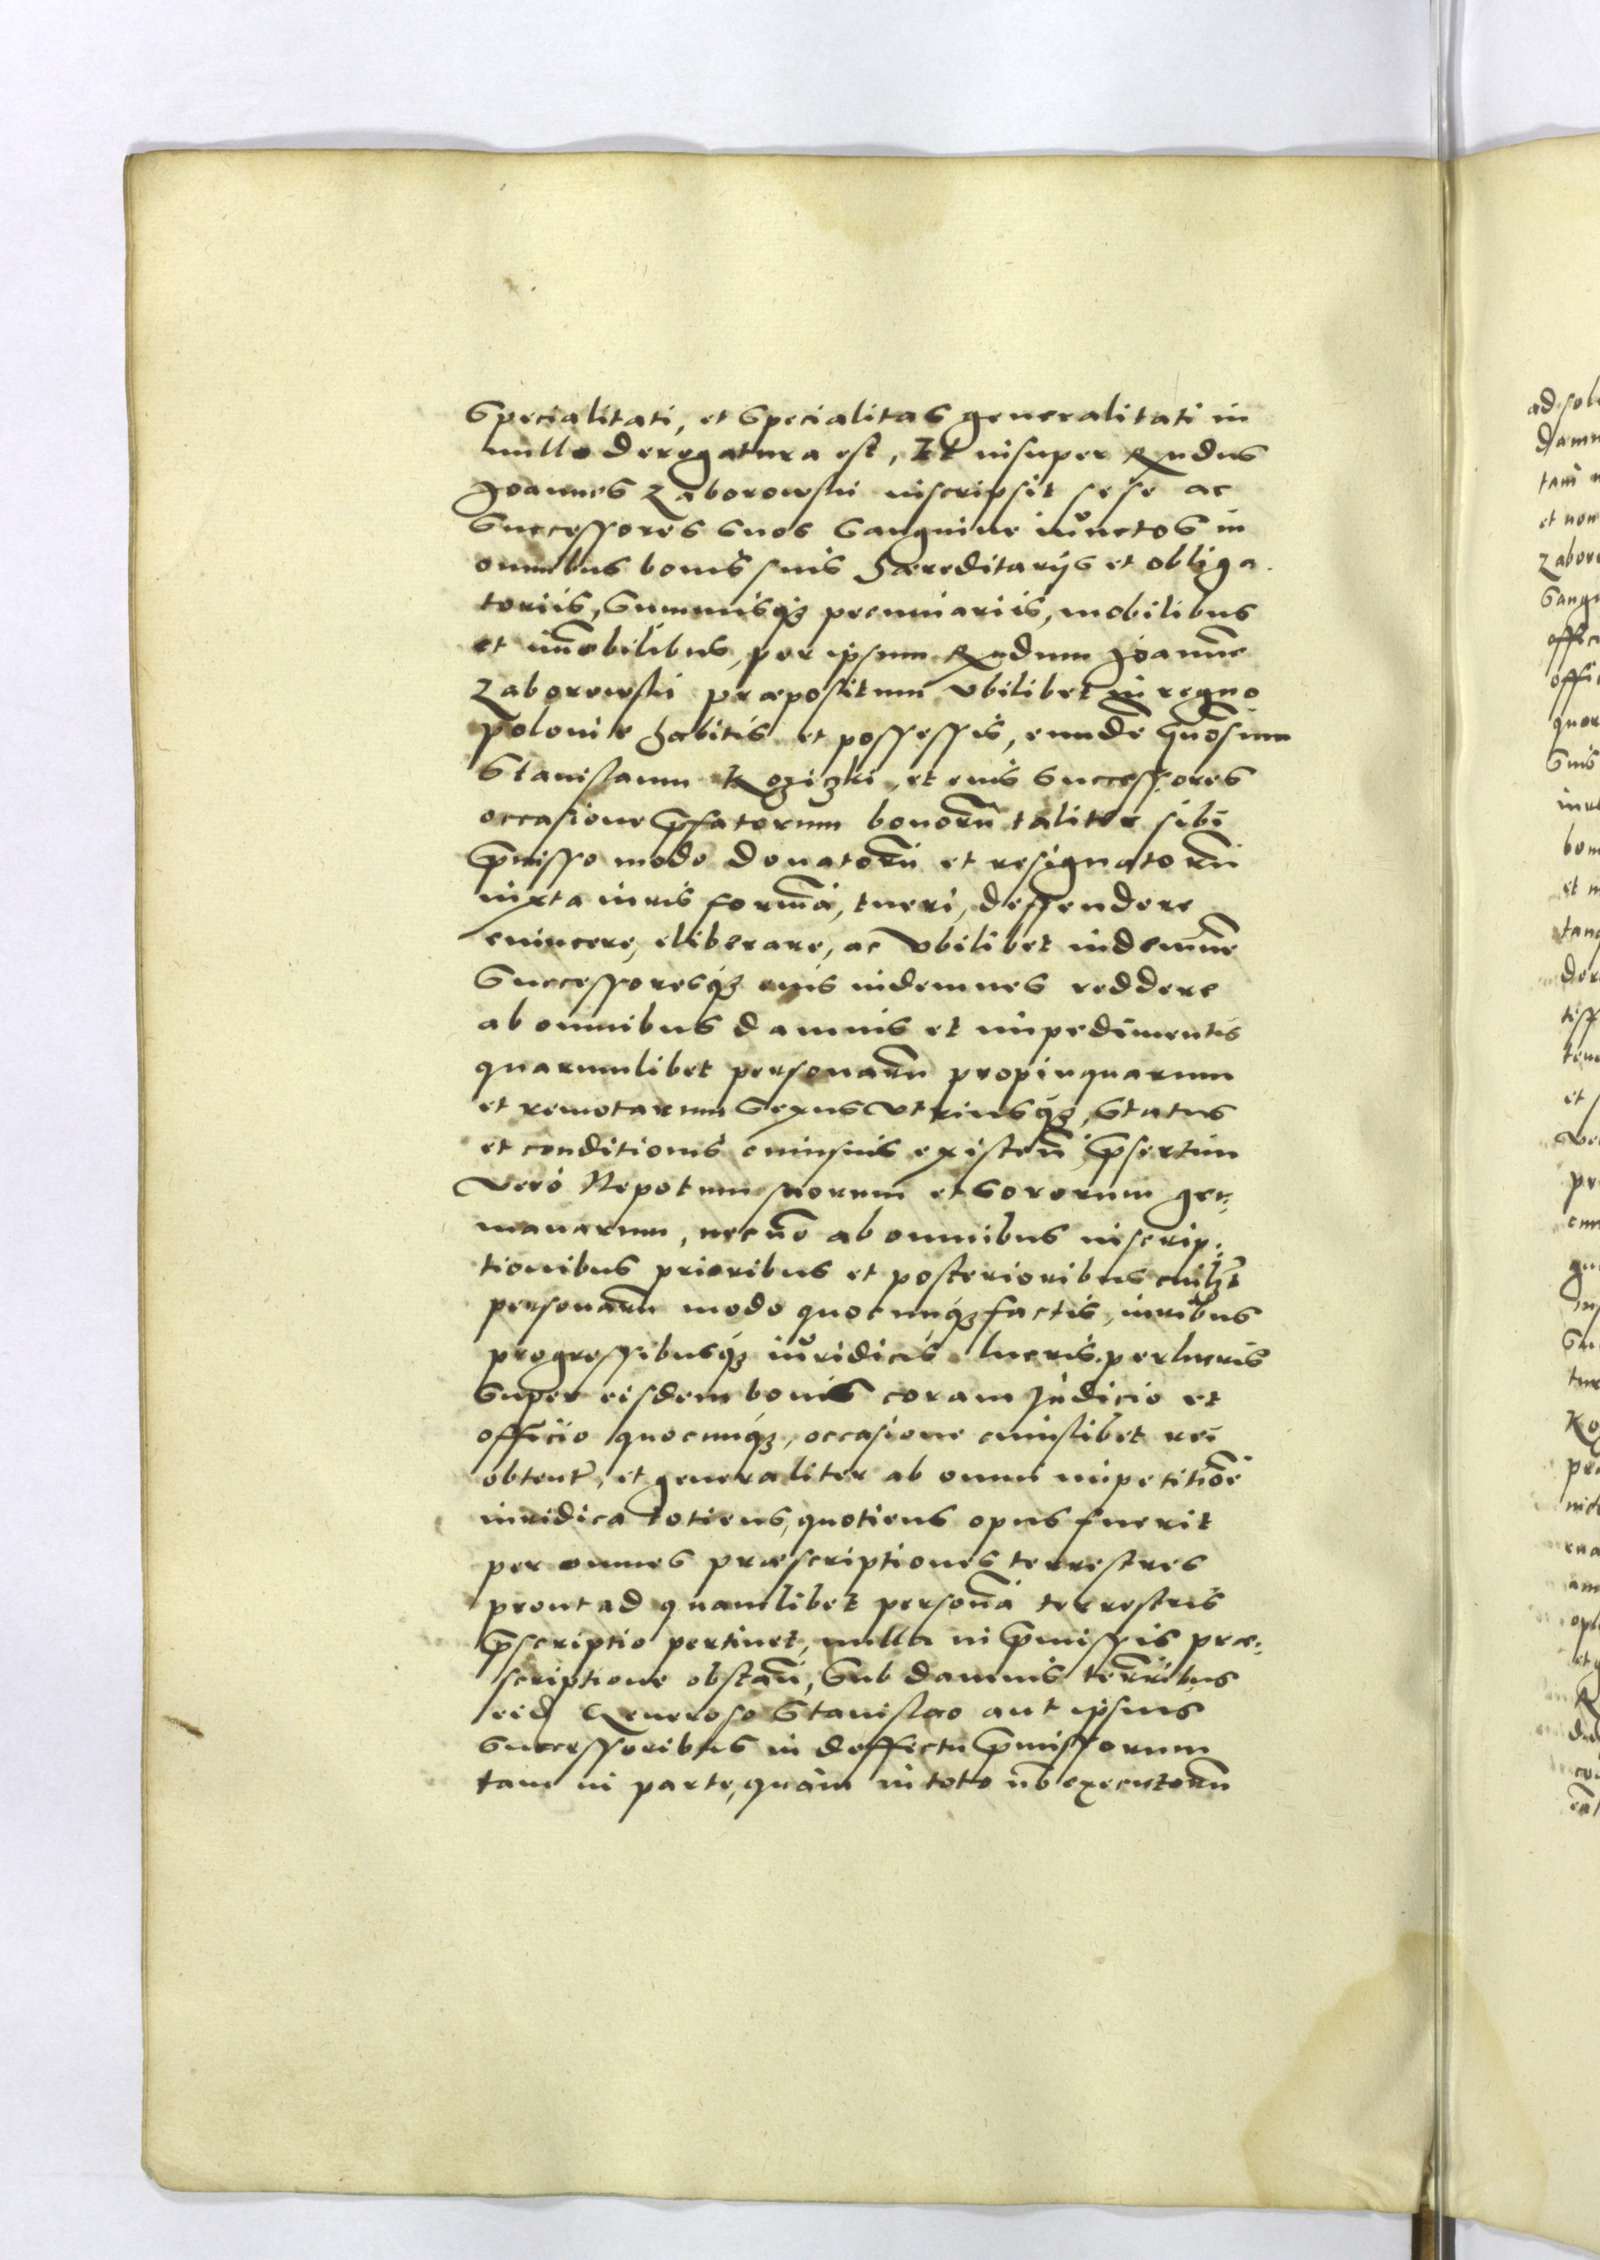 Specialitati, et Specialitas generalitati in
nullo derogatura est, Et insuper Rndus
Joannes Zaborowski inscripsit sese ac
Successores suos Sanguine iunctos in
omnibus bonis suis Haereditarijs et obliga
toriis, Summisq3 pecuniariis, mobilibus
et im̄obilibus, per ipsum Rndum Joannē
Zaborowski praepositum vbilibet in regno
Polonie habitis et possessis, eundē gnōsum
Stanislaum Koziczki, et eius Successores
occasione p̄fatorum bonorū taliter sibi
p̄misso modo donatorū et resignatorū
iuxta iuris formā, tueri, deffendere
euincere, eliberare, ac vbilibet indemnē
Successoresq3 eius indemnes reddere
ab omnibus damnis et impedimentis
quarumlibet personarū propinquarum
et remotarum Sexus vtriusq3, Status
et conditionis cuiusuis existen̄ p̄sertim
vero Nepotum suorum et Sororum ger:
manarum, necnō ab omnibus inscrip:
tionibus prioribus et posterioribus cuilibt
personarū modo quocunq3 factis, iuribus
progressibusq3 iuridicis lucris perlucris
Super eisdem bonis coram Judicio et
officio quocunq3, occasione cuiuslibet rei
obtent̄, et generaliter ab omni impetitiōe
iuridica totiens, quotiens opus fuerit
per omnes praescriptiones terrestres
prout ad quamlibet personā terrestris
p̄scriptio pertinet, nulla in p̄missis prae:
scriptione obstan̄, Sub damnis terrībus
eid Generoso Stanislao aut ipsius
Successoribus in deffectu p̄missorum
tam in parte, quam in toto nō executorū